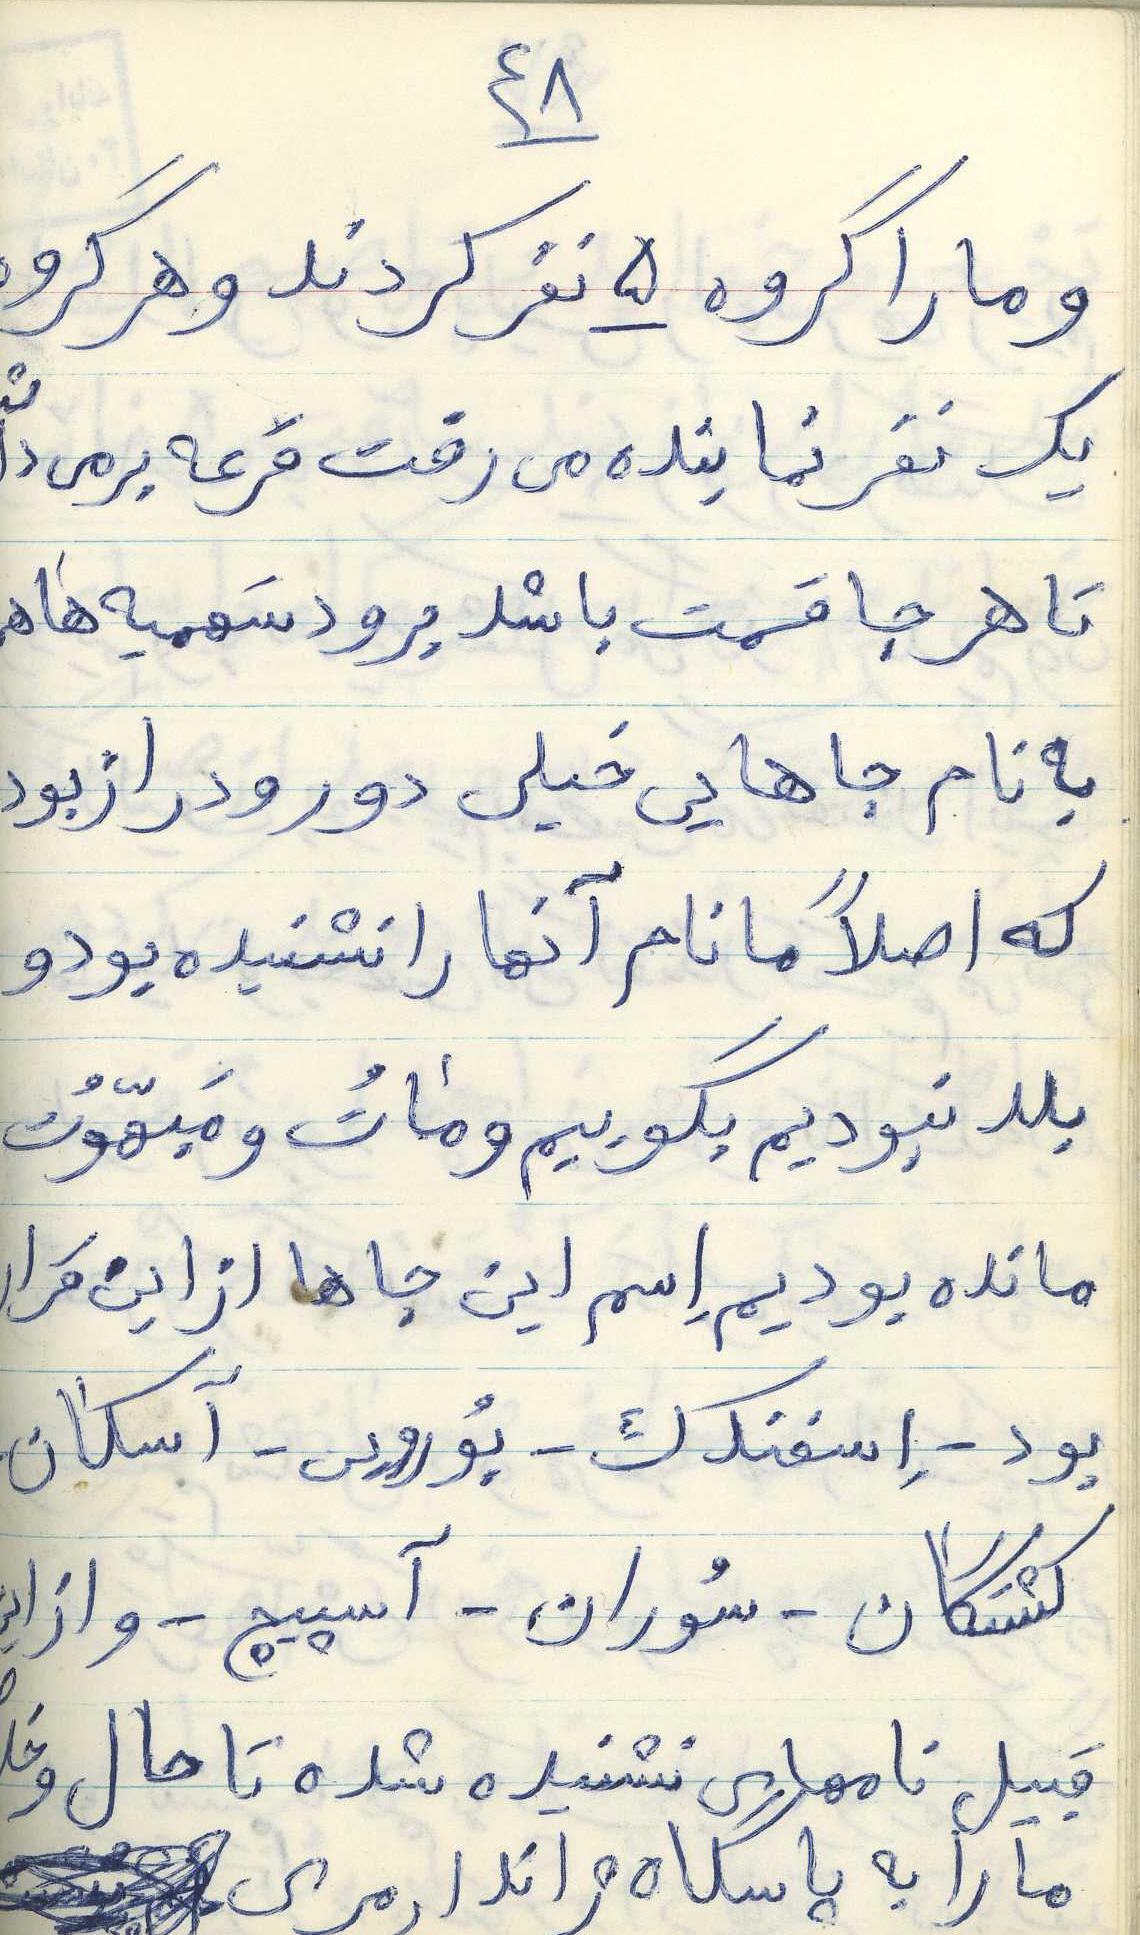 ٤٨
و ما را گروه ۵ نفر کردند و هر گروه
یک نفر نماینده می رفت قرعه برمی داشت
تا هر جا قسمت باشد برود سَهمیه ها هم
به نام جاهایی خیلی دور و دراز بود
که اصلاً ما نام آنها را نشنیده بود و
بلد نبودیم بگوییم و ماتُ و مَبهّوُت
مانده بودیم اِسم این جاها از این قرار
بود - اِسفندک - بُوروی - آسکان -
کشتگان - سُوران - آسپیچ - و از این
قبیل نامهای نشنیده شده تا حال و
ما را به پاسگاه ژاندارمری